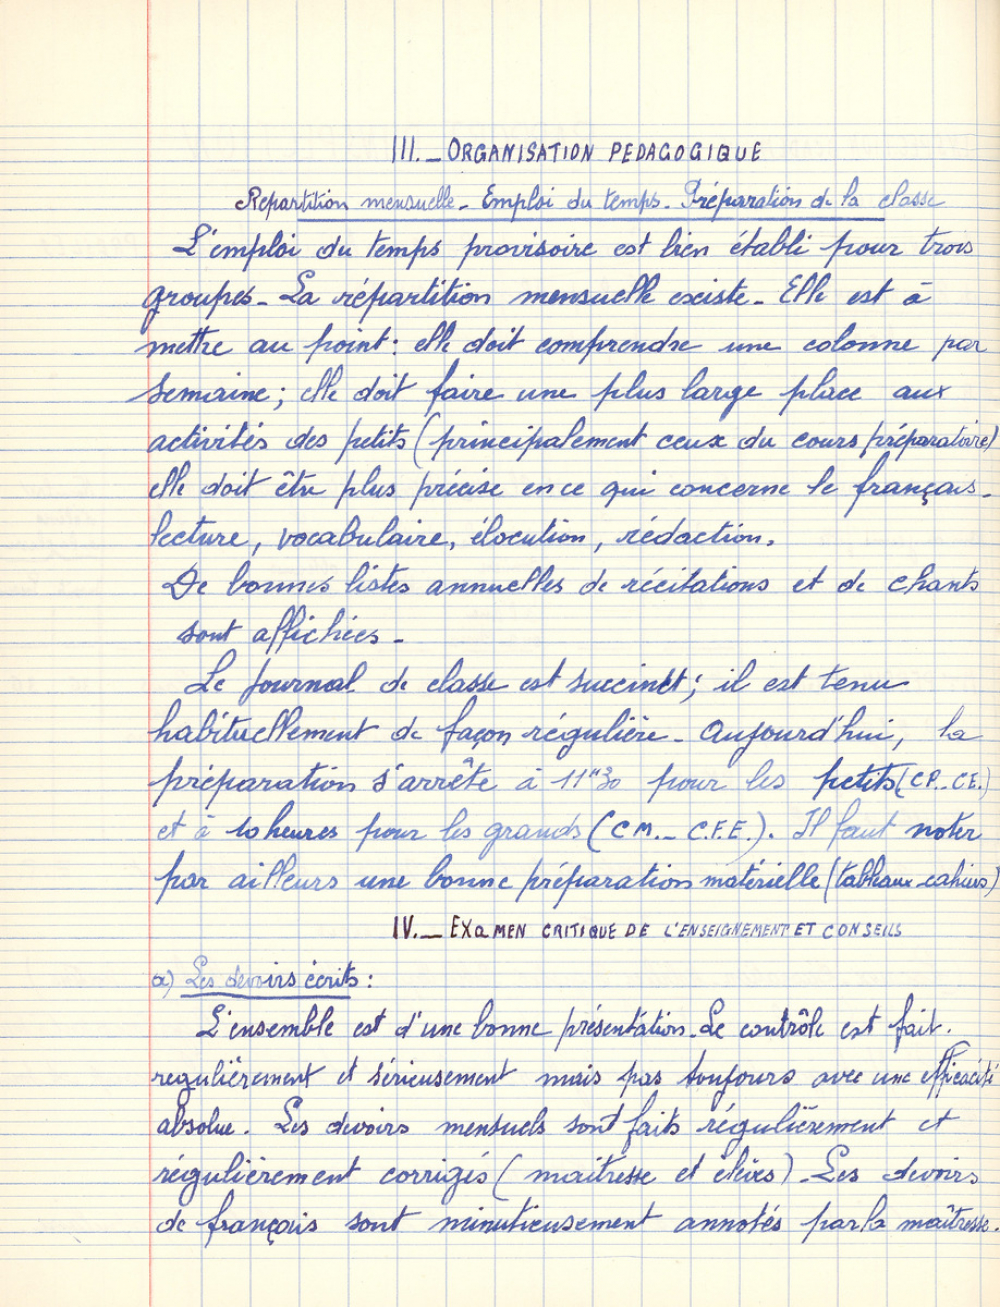 III._ ORGANISATION PEDAGOGIQUE
Repartition mensuelle - Emploi du temps - Préparation de la classe
L'emploi du temps provisoire est bien établi pour trois
groupes - La répartition mensuelle existe - Elle est à
mettre au point : elle doit comprendre une colonne par
semaine ; elle doit faire une plus large place aux
activités des petits (principalement ceux du cours préparatoire)
elle doit être plus précise en ce qui concerne le français -
lecture, vocabulaire, élocution, rédaction.
De bonnes listes annuelles de récitations et de chants
sont affichées -
Le journal de classe est succinct ; il est tenu
habituellement de façon régulière - Aujourd'hui, la
préparation s'arrête à 11h30 pour les petits (CP.. CE.)
et à 10 heures pour les grands (CM._ C.F.E.). Il faut noter
par ailleurs une bonne préparation matérielle (tableaux-cahiers)
IV._ EXAMEN CRITIQUE DE L'ENSEIGNEMENT ET CONSEILS
a) Les devoirs écrits :
L'ensemble est d'une bonne présentation. Le contrôle est fait.
regulièrement et sérieusement mais pas toujours avec une efficacité
absolue. Les devoirs mensuels sont faits régulièrement et
régulièrement corrigés (maitresse et élèves) - Les devoirs
de français sont minutieusement annotés par la maîtresse.